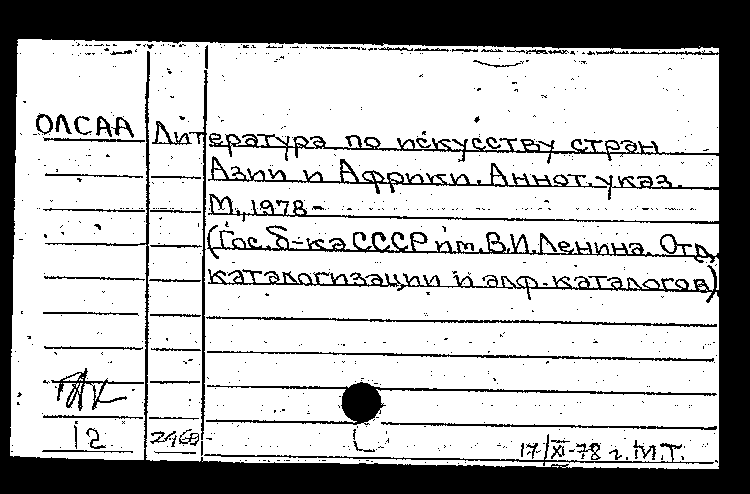 ОЛСАА Литература по искусству стран
Азии и Африки. Аннот. указ.
М., 1978 -
(Гос. б-ка СССР им. В.И. Ленина. Отд.
каталогизации и алф. каталогов)
12 17/XI-78 г. М.Т.